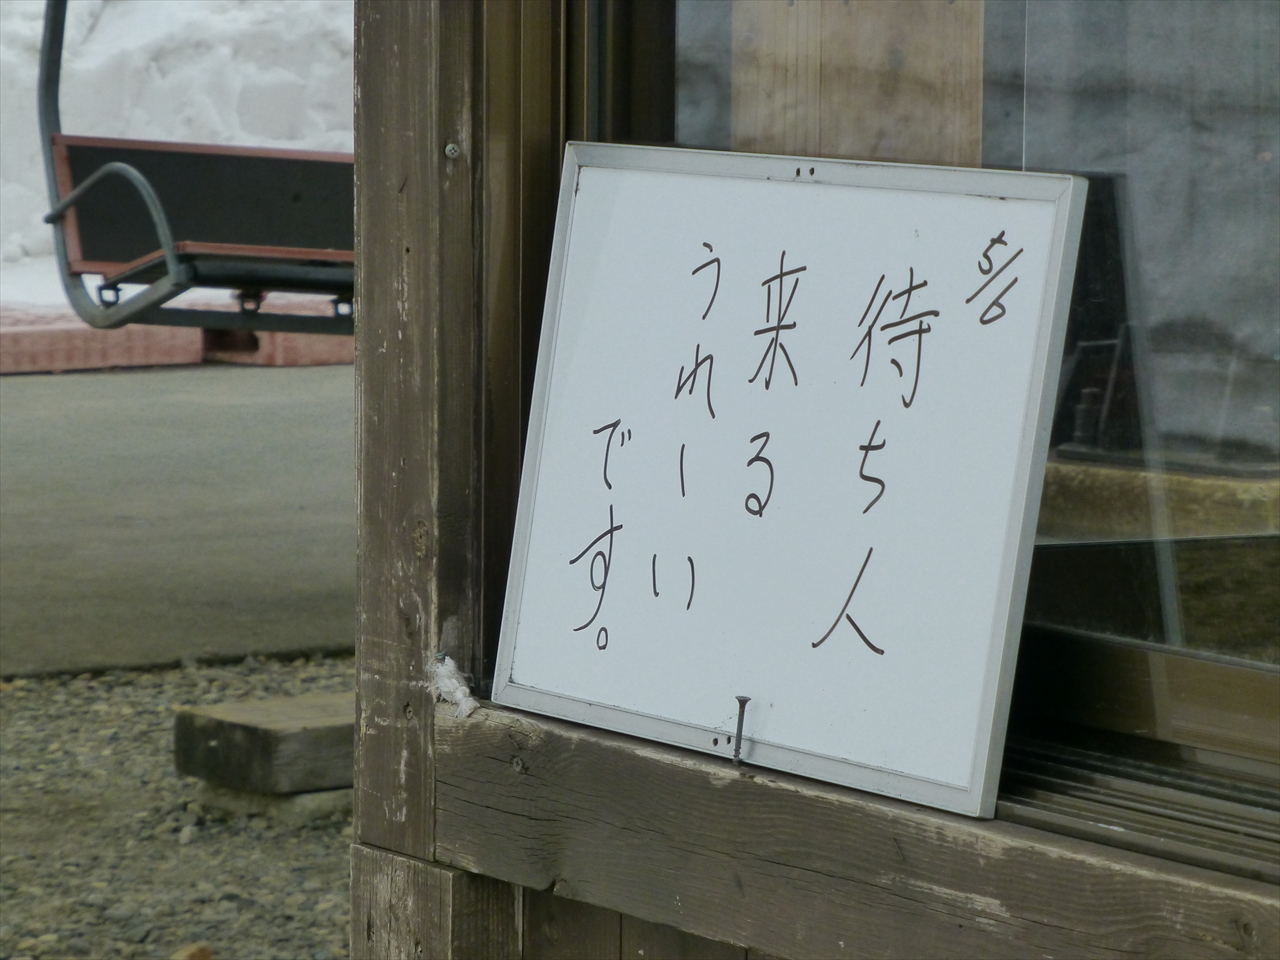 5/6
待ち人
来る
うれしい
です。